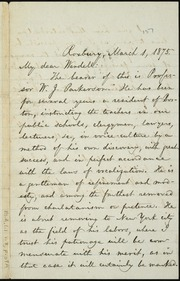 Roxbury, March 1, 1875.
My dear Wendell:
The bearer of this is Profes-
sor W. J. Parkerson. He has been
for several years a resident of Bos-
ton, instructing the teachers in our
public schools, clergymen, lawyers,
lecturers, &c., in voice culture by a
method of his own discovery, with great
success, and in perfect accordance
with the laws of vocalization. He is
a gentleman of refinement and mod-
esty, and among the farthest removed
from charlatanism or pretence. He
is about removing to New York city
as the field of his labors, where I
trust his patronage will be com-
mensurate with his merit, as in
that case it will certainly be marked.